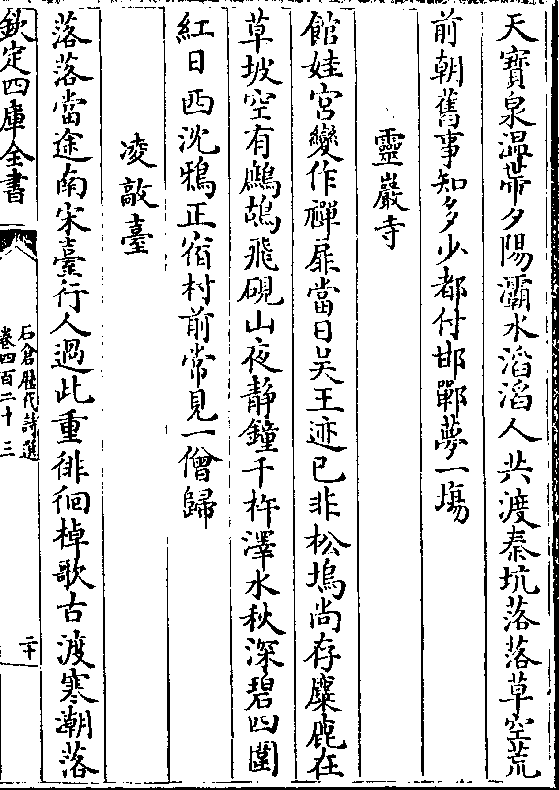 天寶泉温帶夕陽灞水滔滔人共渡秦坑落落草空荒
前朝舊事知多少都付邯鄲夢一塲
靈巖寺
館娃宮變作禪扉當日吴王迹已非松塢尚存麋鹿在
草坡空有鷓鴣飛硯山夜靜鐘千杵澤水秋深碧四圍
紅日西沈鴉正宿村前常見一僧歸
凌歊臺
落落當途南宋臺行人過此重徘徊棹歌古渡寒潮落
欽定四庫全書
石倉歷代詩選
卷四百二十三
二十